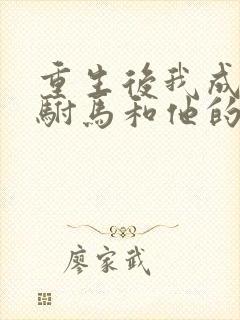 重生後我成
駙馬和他的
廖家武